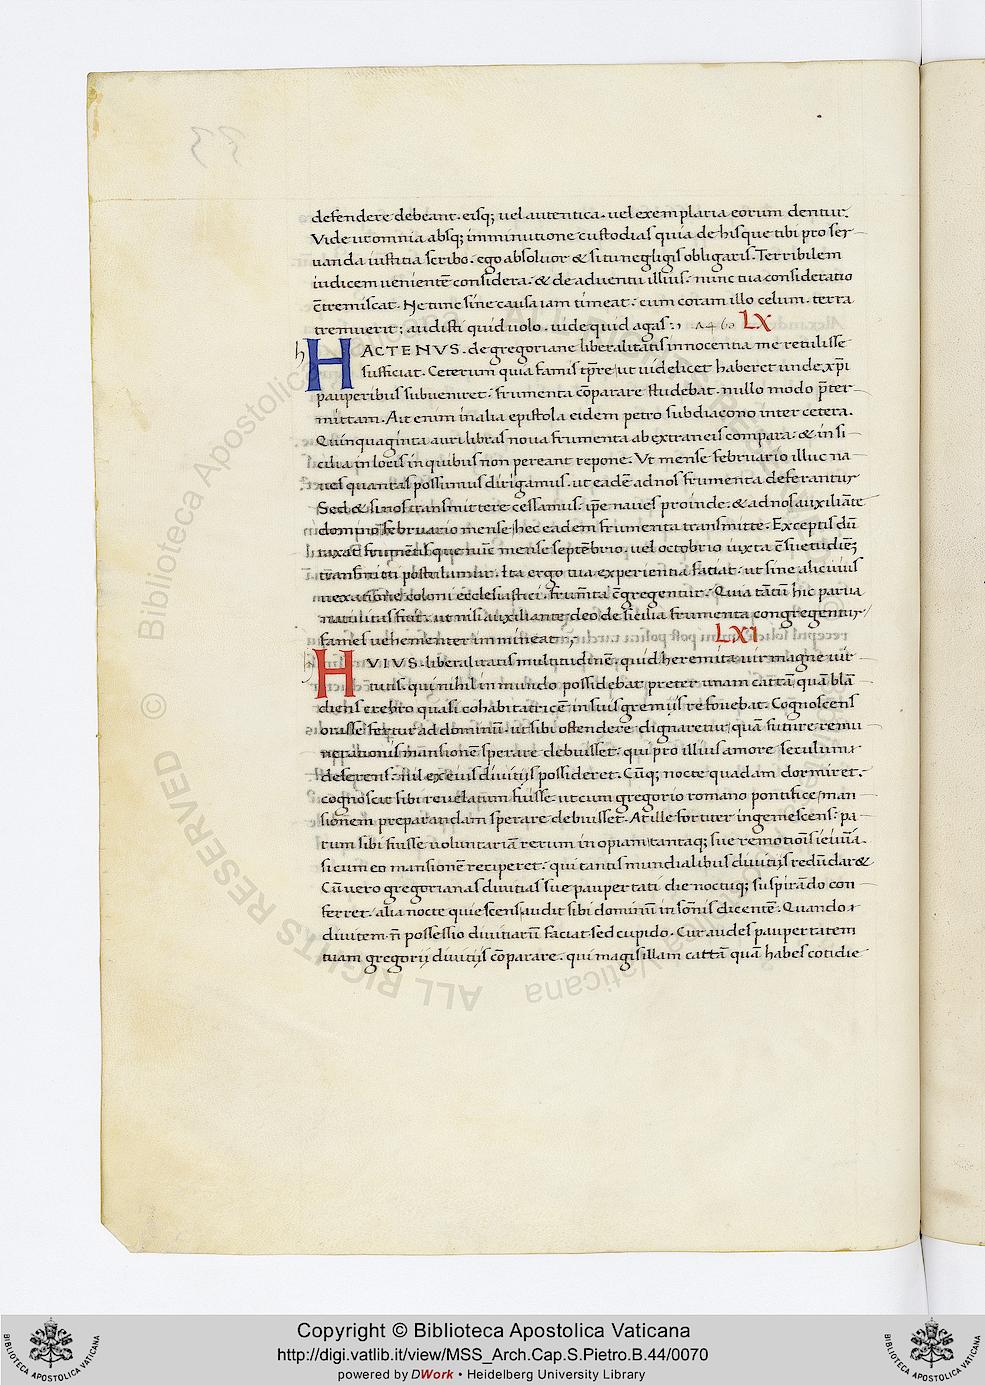 defendere debeant. eisq; uel autentica. uel exemplaria eorum dentur.
Vide ut omnia absq; imminutione custodias quia de his que tibi pro ser
uanda iustitia scribo. ego absoluor & si tu negligis obligaris. Terribilem
iudicem uenientē considera. & de aduentu illius. nunc tua consideratio
c̄tremiscat. Ne tunc sine causa iam timeat. cum coram illo celum. terra
tremuerit; audisti quid uolo. uide quid agas. LX
h
HACTENVS. de gregoriane liberalitatis innocentia me retulisse
sufficiat. Ceterum quia famis tp̄re, ut uidelicet haberet unde xp̄i
pauperibus subueniret. frumenta cōparare studebat. nullo modo p̄ter
mittam. Ait enim in alia epistola eidem petro subdiacono inter cetera.
Quinquaginta auri libras noua frumenta ab extraneis compara. & in si
cilia in locis in quibus non pereant repone. Vt mense februario illuc na
ues quantas possumus dirigamus. ut eadē ad nos frumenta deferantur
Sed & si nos transmittere cessamus. ip̄e naues proinde. & ad nos auxiliāte
domino februario mense hec eadem frumenta transmitte. Exceptis dū
taxat frumētis que nūc mense septēbrio. uel octobrio iuxta c̄suetudinē
transmitti postulamus. Ita ergo tua experientia faciat. ut sine alicuius
uexatione coloni ecclesiastici. frum̄ta c̄gregentur. Quia tātū hic parua
natiuitas fuit. ut nisi auxiliante deo de sicilia frumenta congregentur
fames uehementer immineat. LXI
h
HVIVS. liberalitatis multitudinē. quid heremita uir magne uir
tutis. qui nihil in mundo possidebat preter unam cattā quā blā
diens crebro quasi cohabitatricē in suis gremijs refouebat. Cognoscens
orasse fertur ad dominū. ut sibi ostendere dignaretur, quā future remu
nerationis mansionē sperare debuisset. qui pro illius amore seculum
deserens. nil ex eius diuitijs possideret. Cūq; nocte quadam dormiret.
cognoscit sibi reuelatum fuisse. ut cum gregorio romano pontifice, man
sionem preparandam sperare debuisset. At ille fortiter ingemescens. pa
rum sibi fuisse uoluntariā rerum inopiam, tantaq; sue remotionis ieiunia.
si cum eo mansionē reciperet. qui tantis mundialibus diuitijs redūdar&
Cū uero gregorianas diuitias sue paupertati die noctuq; suspirādo con
ferret. alia nocte quiescens, audit sibi dominū in sōnis dicentē. Quando
diuitem n̄ possessio diuitiarū faciat sed cupido. Cur audes paupertatem
tuam gregorij diuitijs cōparare. qui magis illam cattā quā habes cotidie
© Biblioteca Apostolica Vaticana
ALL RIGHTS RESERVED
Copyright © Biblioteca Apostolica Vaticana
http://digi.vatlib.it/view/MSS_Arch.Cap.S.Pietro.B.44/0070
powered by DWork • Heidelberg University Library